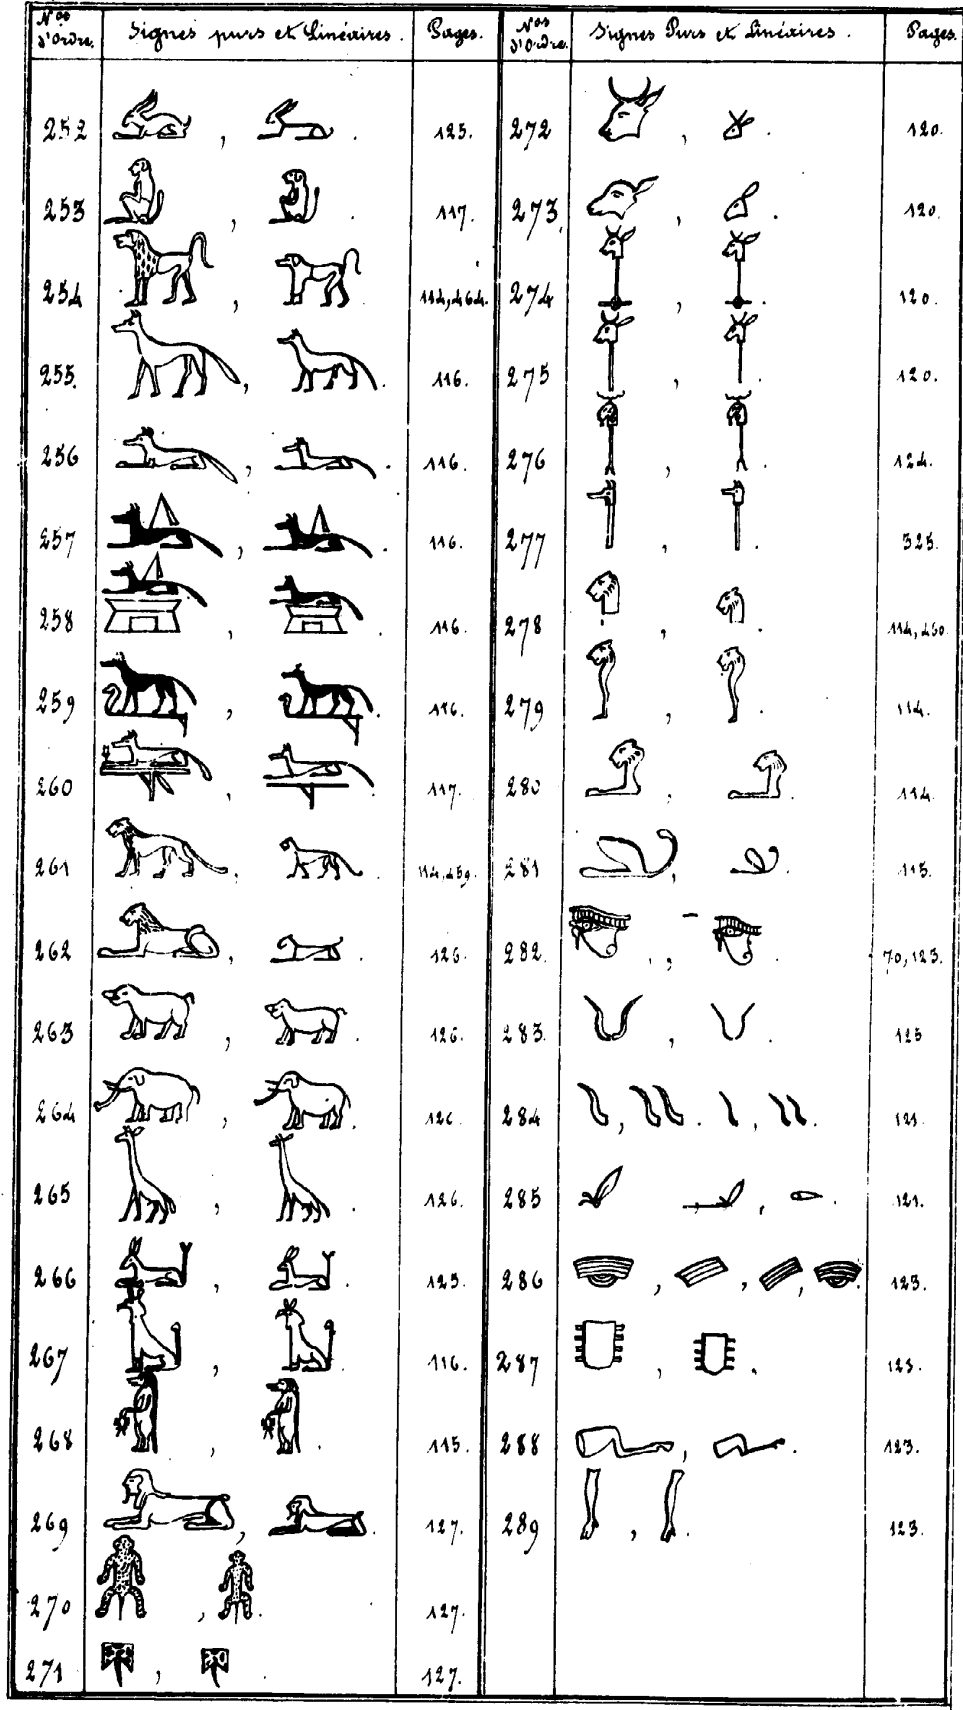 Nos d'Ordre. Signes purs et Linéaires. Pages.
252 , . 125.
253 , . 117.
254 , . 114, 464.
255. , . 116.
256 , . 116.
257 , . 116.
258 , . 116.
259 , . 116.
260 , . 117.
261 , . 114, 459.
262 , . 126.
263 , . 126.
264 , . 126
265 , . 126.
266 , . 125.
267 , . 116.
268 , . 115.
269 , . 127.
270 , . 127.
271 , . 127.
Nos d'Ordre. Signes Purs et Linéaires. Pages.
272 , . 120.
273 , . 120.
274 , . 120.
275 , . 120.
276 , . 124.
277 , . 325.
278 , . 114, 460.
279 , . 114.
280 , . 114.
281 , . 115.
282. , . 70, 123.
283. , . 125
284 , . , . 121.
285 , . 121.
286 , , , . 123.
287 , . 123.
288 , . 123.
289 , . 123.